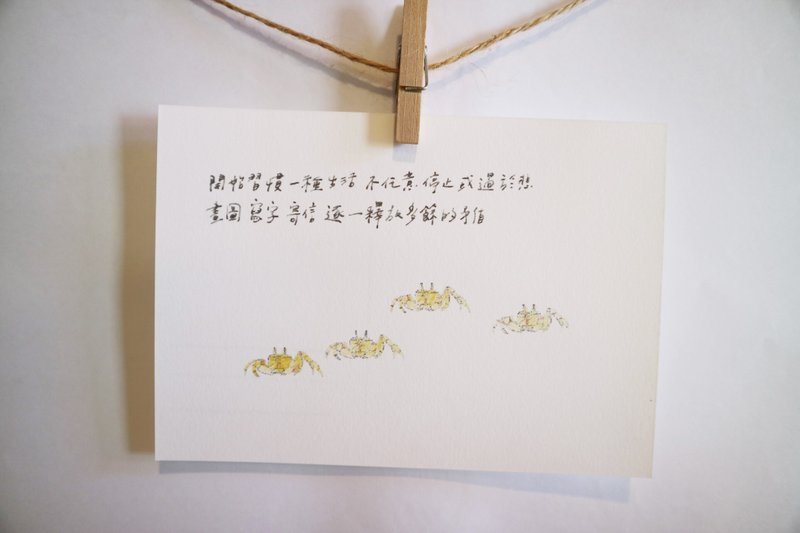 開始習慣一種生活 不任意停止或過於悲
畫圖 寫字 寄信 逐一釋放多餘的矛盾